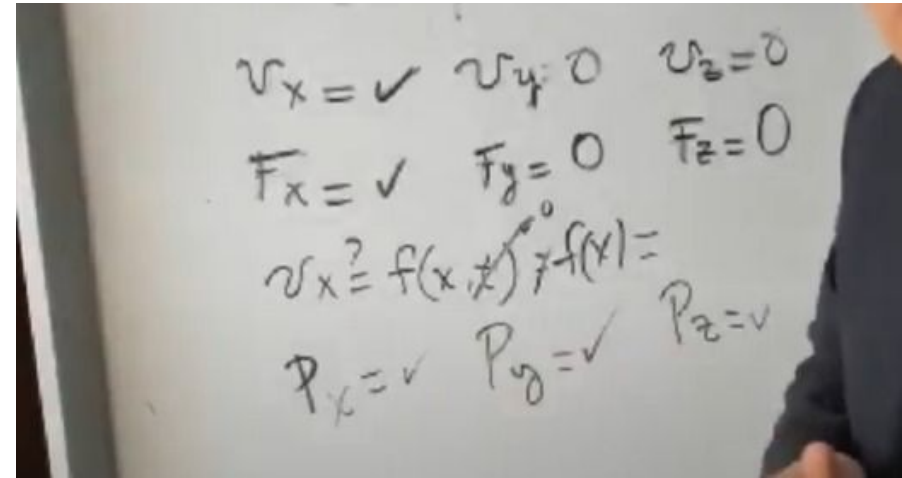 Vx = ✓ Vy: 0 Vz = 0
Fx = ✓ Fy = 0 Fz = 0
Vx ?= f(x,t)→0 ≠ f(x) =
Px = ✓ Py = ✓ Pz = ✓